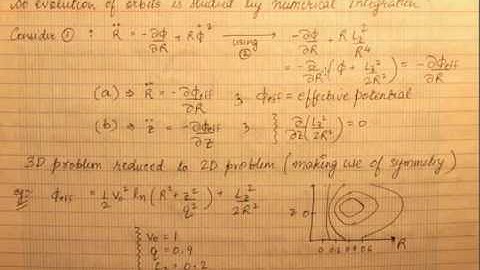 So evolution of orbits is studied by numerical integration
Consider ① : R̈ = -∂ϕ/∂R + Rϕ̇² → using ② -∂ϕ/∂R + R L_z²/R⁴
= -∂/∂R (ϕ + L_z²/2R²) = -∂ϕeff/∂R
(a) ⇒ R̈ = -∂ϕeff/∂R ; ϕeff = effective potential
(b) ⇒ z̈ = -∂ϕeff/∂z ; { ∂/∂z (L_z²/2R²) = 0
3D problem reduced to 2D problem (making use of symmetry)
eg:- ϕeff = 1/2 v₀² ln (R² + z²/q²) + L_z²/2R²
z 0
0 0.2 0.4 0.6 R
v₀ = 1
q = 0.9
L_z = 0.2